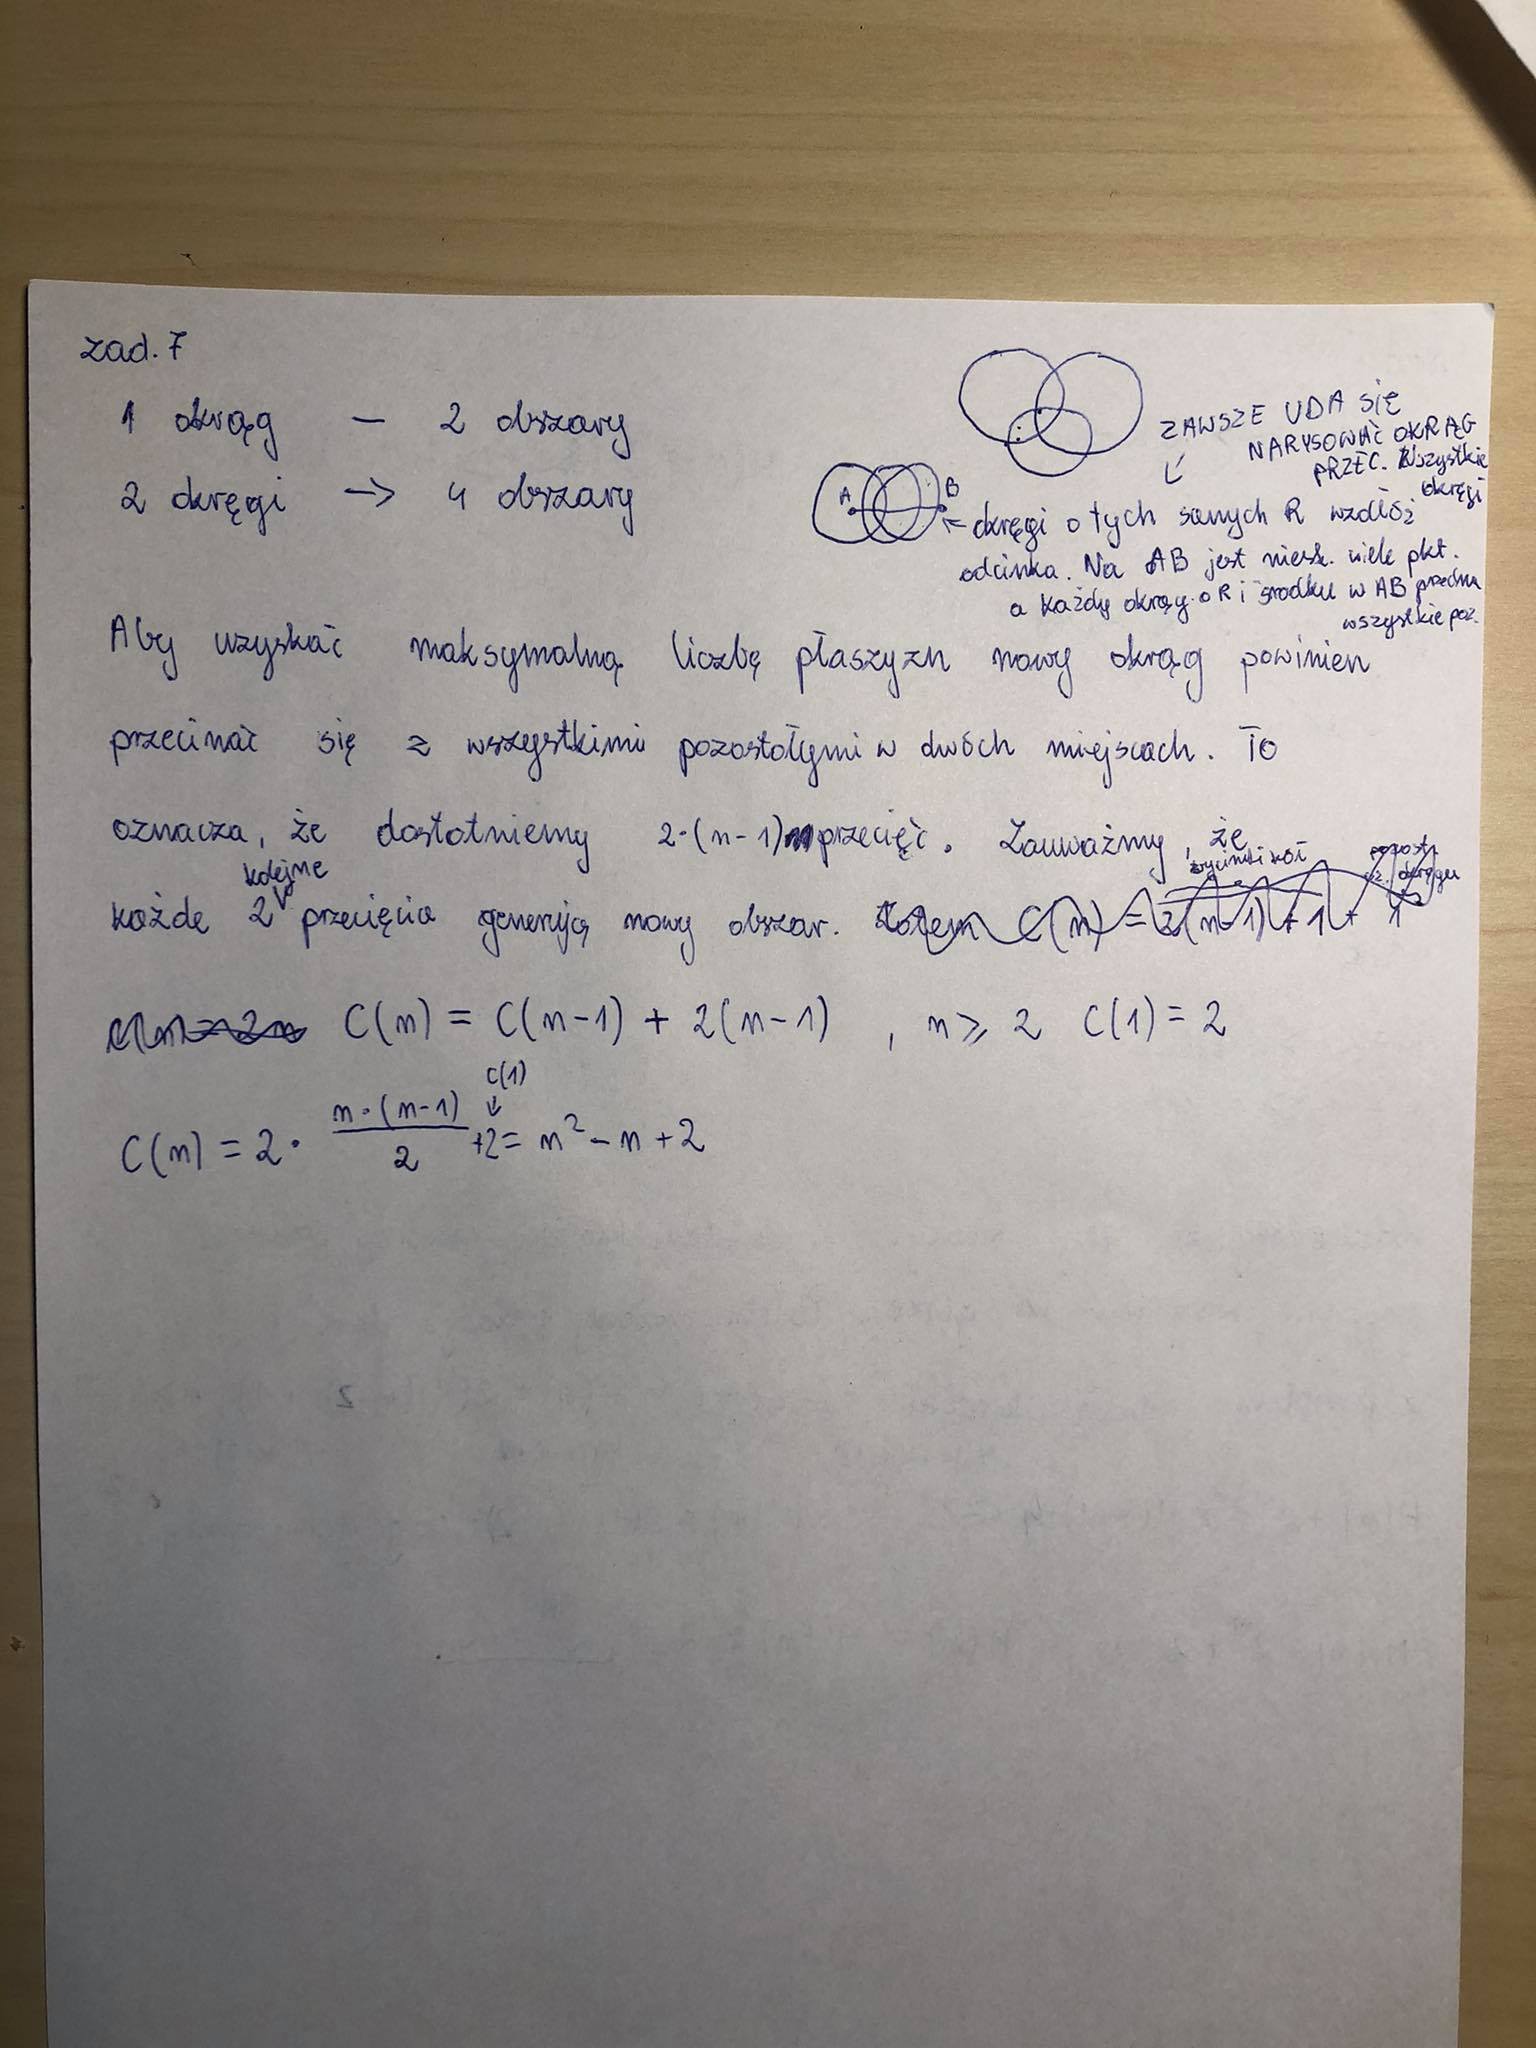 zad. 7
1 okrąg — 2 obszary
2 okręgi → 4 obszary
ZAWSZE UDA SIĘ
NARYSOWAĆ OKRĄG
PRZEC. Wszystkie
okręgi
A B
okręgi o tych samych R wzdłóż
odcinka. Na AB jest niesk. wiele pkt.
a każdy okrąg o R i środku w AB przecina
wszystkie poz.
Aby uzyskać maksymalną liczbę płaszyzn nowy okrąg powinien
przecinać się z wszystkimi pozostałymi w dwóch miejscach. To
oznacza, że dostatniemy 2·(n-1) przecięć. Zauważmy, że
kolejne
każde 2 przecięcia generują nowy obszar. Zatem C(n) = 2(n-1) + 1 + 1
C(n) = 2n C(n) = C(n-1) + 2(n-1) , n ⩾ 2 C(1) = 2
C(1)
↓
C(n) = 2 · n·(n-1)/2 +2 = n² - n + 2